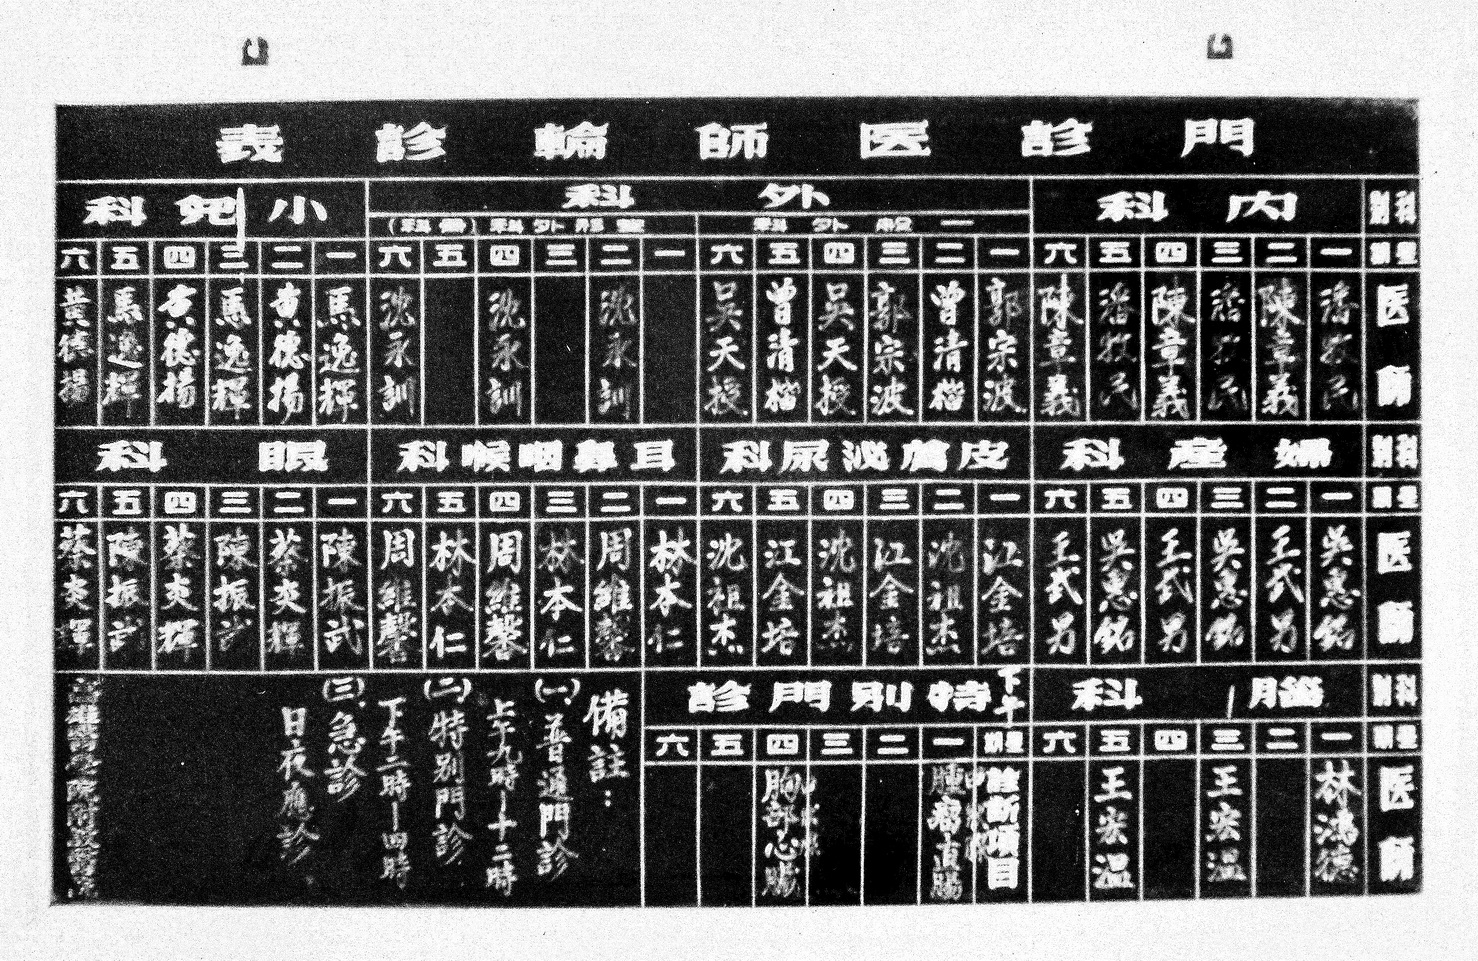 門診医師輪診表
科別 內科 外科 小兒科
一般外科 整形外科(骨科)
星期 一 二 三 四 五 六 一 二 三 四 五 六 一 二 三 四 五 六 一 二 三 四 五 六
医師 潘牧民 陳章義 潘牧民 陳章義 潘牧民 陳章義 郭宗波 曾清楷 郭宗波 吳天授 曾清楷 吳天授 沈永訓 沈永訓 沈永訓 馬逸輝 黃德揚 馬逸輝 黃德揚 馬逸輝 黃德揚
科別 婦產科 皮膚泌尿科 耳鼻咽喉科 眼科
星期 一 二 三 四 五 六 一 二 三 四 五 六 一 二 三 四 五 六 一 二 三 四 五 六
医師 吳惠銘 王武男 吳惠銘 王武男 吳惠銘 王武男 江金培 沈祖杰 江金培 沈祖杰 江金培 沈祖杰 林本仁 周維馨 林本仁 周維馨 林本仁 周維馨 陳振武 蔡炎輝 陳振武 蔡炎輝 陳振武 蔡炎輝
科別 腦科 下午特別門診
星期 一 二 三 四 五 六 星期 一 二 三 四 五 六
医師 林鴻德 王宏溫 王宏溫 診斷項目 腫瘤直腸 胸部心臟
備註：
(一)普通門診
上午九時—十二時
下午二時—四時
(二)特別門診
(三)急診
日夜應診